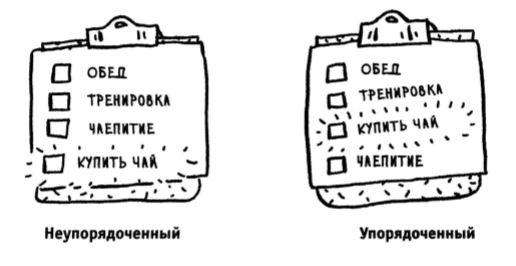 ОБЕД
ТРЕНИРОВКА
ЧАЕПИТИЕ
КУПИТЬ ЧАЙ
Неупорядоченный
ОБЕД
ТРЕНИРОВКА
КУПИТЬ ЧАЙ
ЧАЕПИТИЕ
Упорядоченный